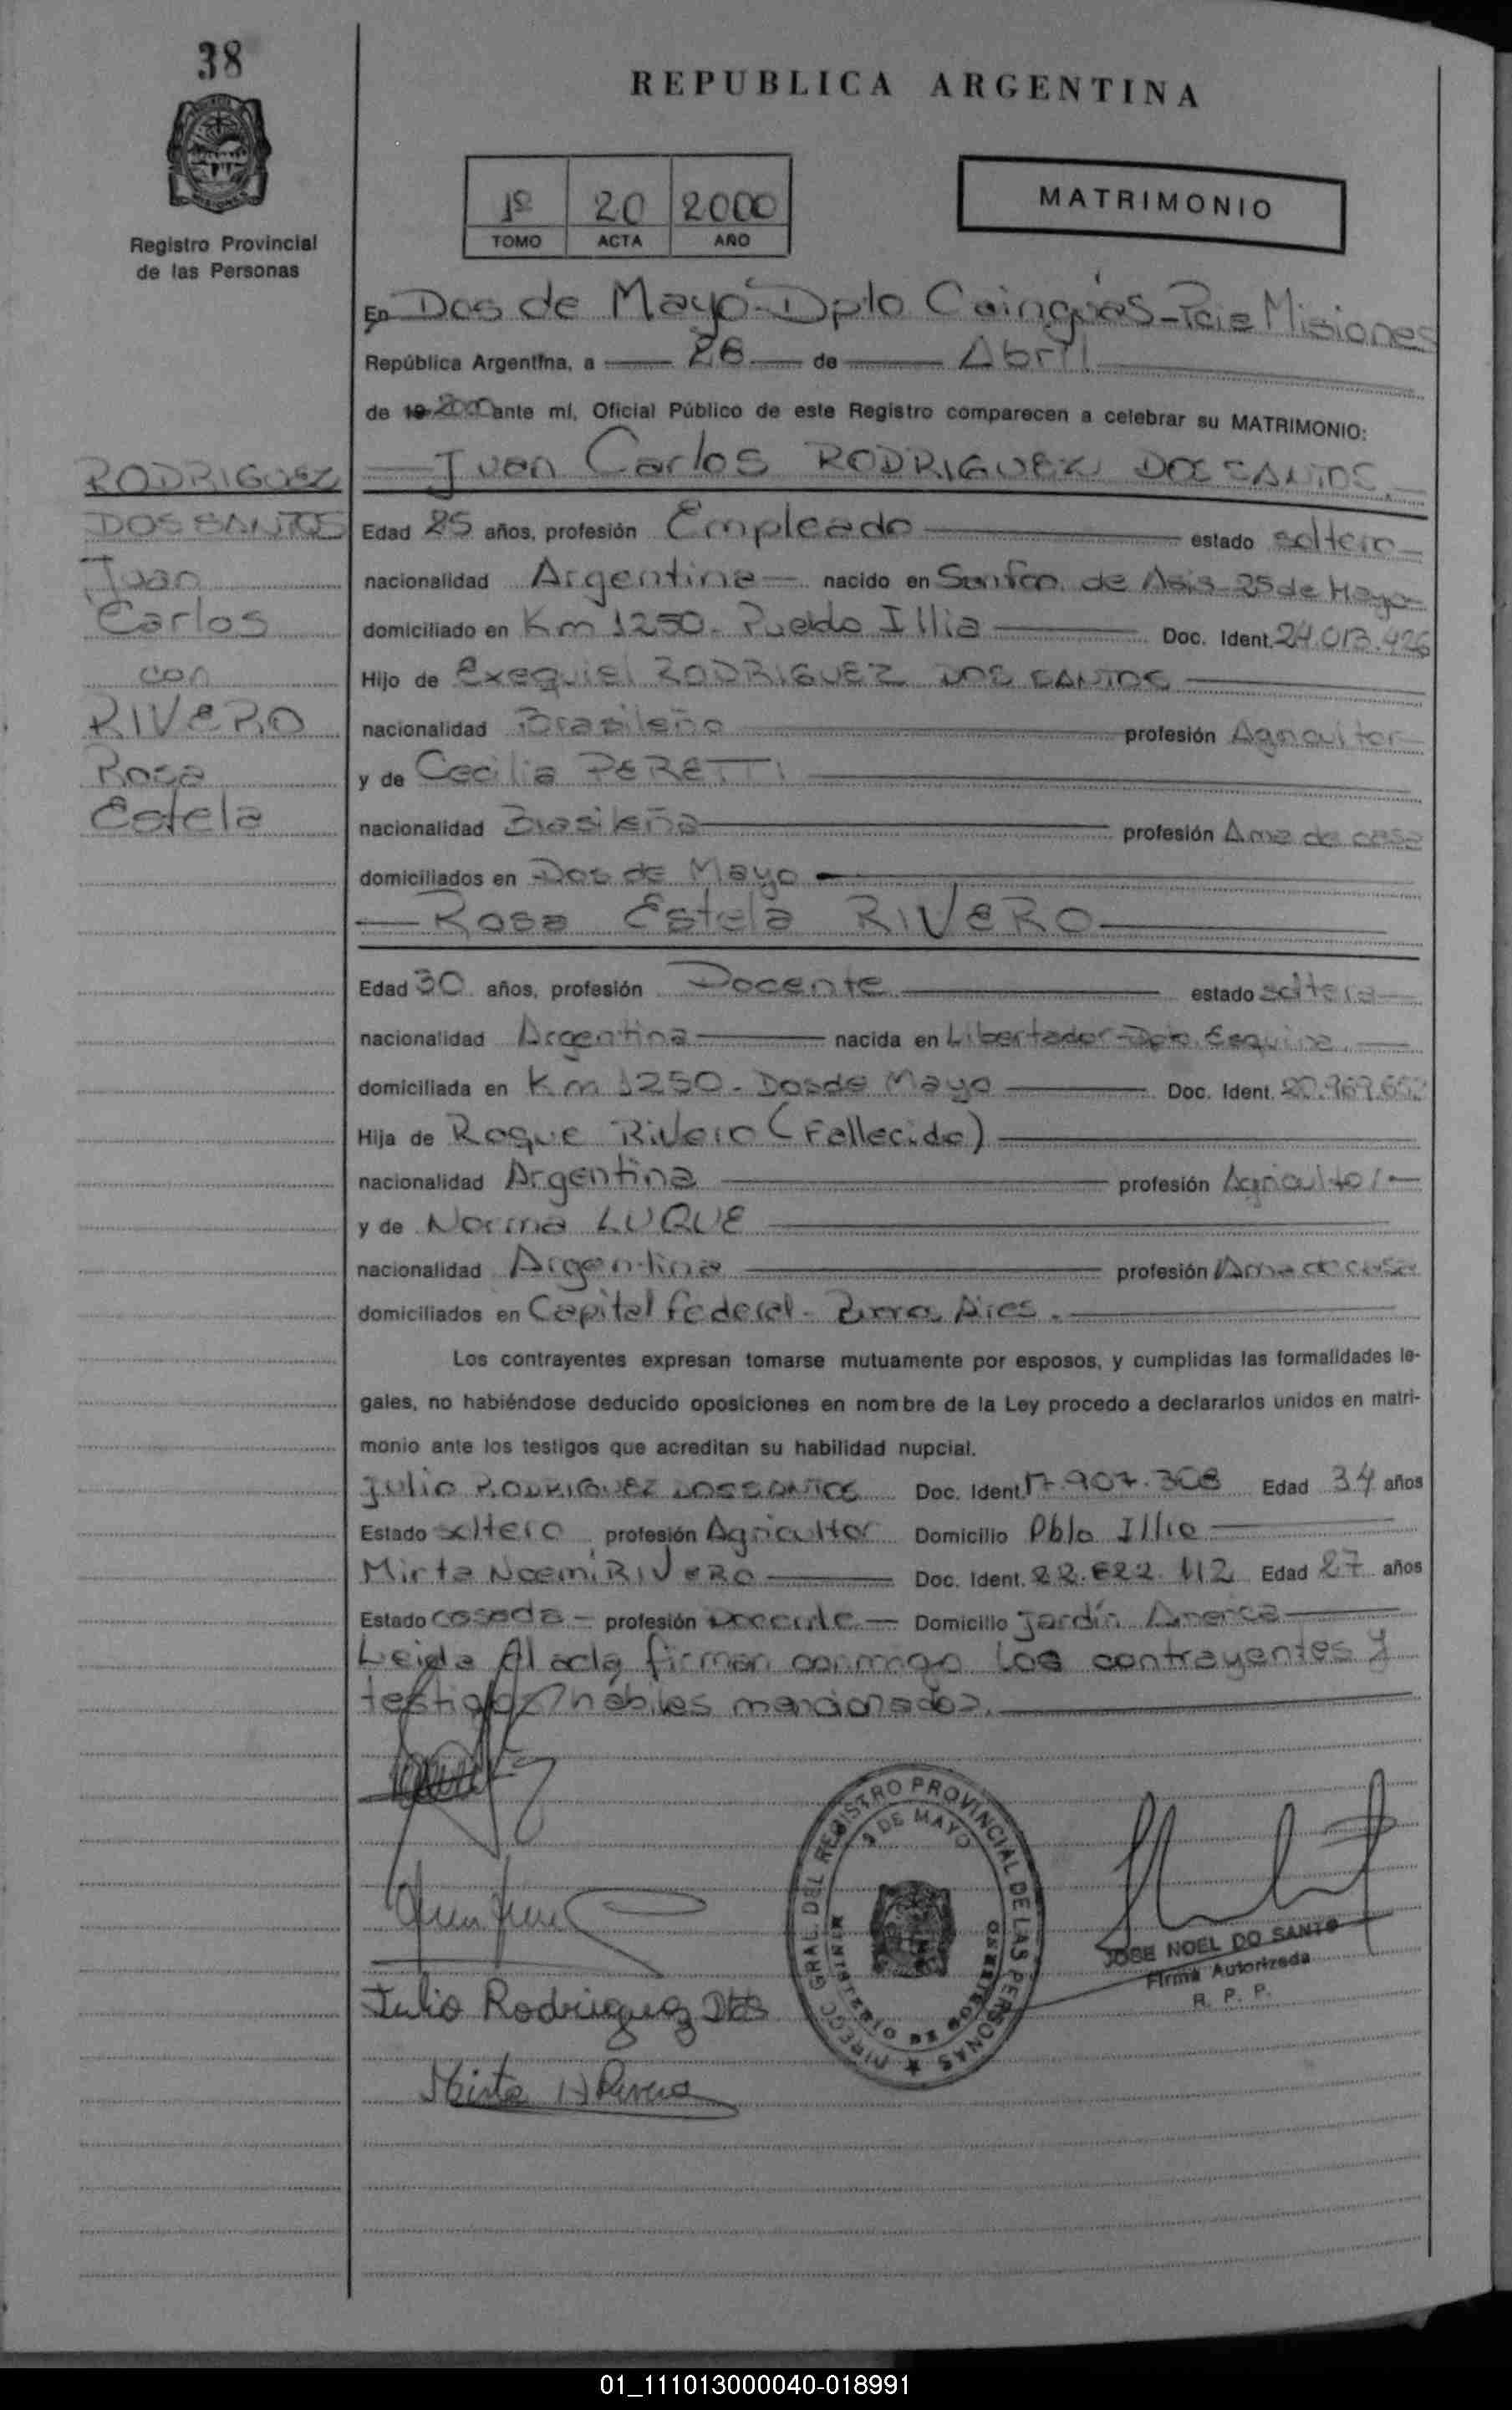 38
REPUBLICA ARGENTINA
Registro Provincial
de las Personas
1º 20 2000
TOMO ACTA AÑO
MATRIMONIO
En Dos de Mayo - Dpto Cainguás - Pcia Misiones
República Argentina, a 28 de Abril
de 19 2000 ante mí, Oficial Público de este Registro comparecen a celebrar su MATRIMONIO:
RODRIGUEZ
DOS SANTOS
Juan
Carlos
con
RIVERO
Rosa
Estela
Juan Carlos RODRIGUEZ DOS SANTOS.
Edad 25 años, profesión Empleado estado soltero
nacionalidad Argentina nacido en San Fco. de Asis - 25 de Mayo
domiciliado en Km 1250. Pueblo Illia Doc. Ident. 24.013.426
Hijo de Exequiel RODRIGUEZ DOS SANTOS
nacionalidad Brasileño profesión Agricultor
y de Cecilia PERETTI
nacionalidad Brasileña profesión Ama de casa
domiciliados en Dos de Mayo
Rosa Estela RIVERO
Edad 30 años, profesión Docente estado soltera
nacionalidad Argentina nacida en Libertador - Dpto. Esquina.
domiciliada en Km 1250 - Dos de Mayo Doc. Ident. 20.969.652
Hija de Roque Rivero (Fallecido)
nacionalidad Argentina profesión Agricultor
y de Norma LUQUE
nacionalidad Argentina profesión Ama de casa
domiciliados en Capital Federal - Buenos Aires.
Los contrayentes expresan tomarse mutuamente por esposos, y cumplidas las formalidades le-
gales, no habiéndose deducido oposiciones en nombre de la Ley procedo a declararlos unidos en matri-
monio ante los testigos que acreditan su habilidad nupcial.
Julio RODRIGUEZ DOS SANTOS Doc. Ident. 17.907.308 Edad 34 años
Estado soltero profesión Agricultor Domicilio Pblo Illia
Mirta Noemi RIVERO Doc. Ident. 22.622.112 Edad 27 años
Estado casada profesión Docente Domicilio Jardín America
Leida el acta, firman conmigo los contrayentes y
testigos hábiles mencionados.
DIRECC. GRAL. DEL REGISTRO PROVINCIAL DE LAS PERSONAS
2 DE MAYO
MINISTERIO DE GOBIERNO
JOSE NOEL DO SANTO
Firma Autorizada
R. P. P.
Julio Rodriguez Dos
Mirta N Rivero
01_111013000040-018991